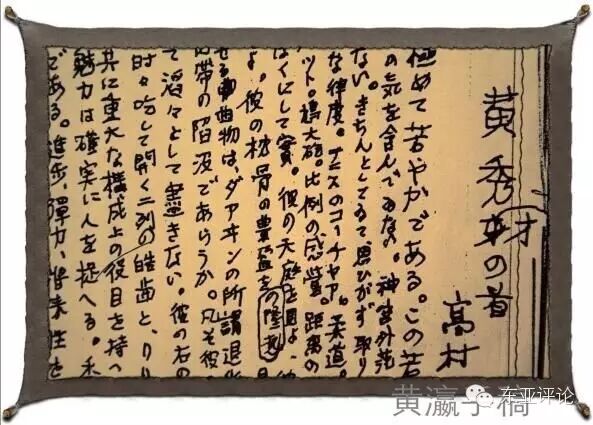 黄秀才の首
高村
極めて苦やかである。この苦
の気を含んでゐない。神宮外苑
ない。きちんとしてゐて思ひがず取り
な律度。テニスのコーチヤア。柔道。
ット。大砲。比例の感覚。距離の
はくにして實。彼の天庭を見よ、
よ。彼の枕骨の豊盈との隆起
せる彎曲物は、ダアヰンの所謂退化
帯の陥没であらうか。凡そ彼
て滔々として盡きない。彼の右の
時々吃して開く二列の皓歯と、りり
其に重大な構成上の役目を持へ
魅力は確実に人を捉へる。私
である。進歩、弾力、将来性を
黄瀛手稿
东亚评论